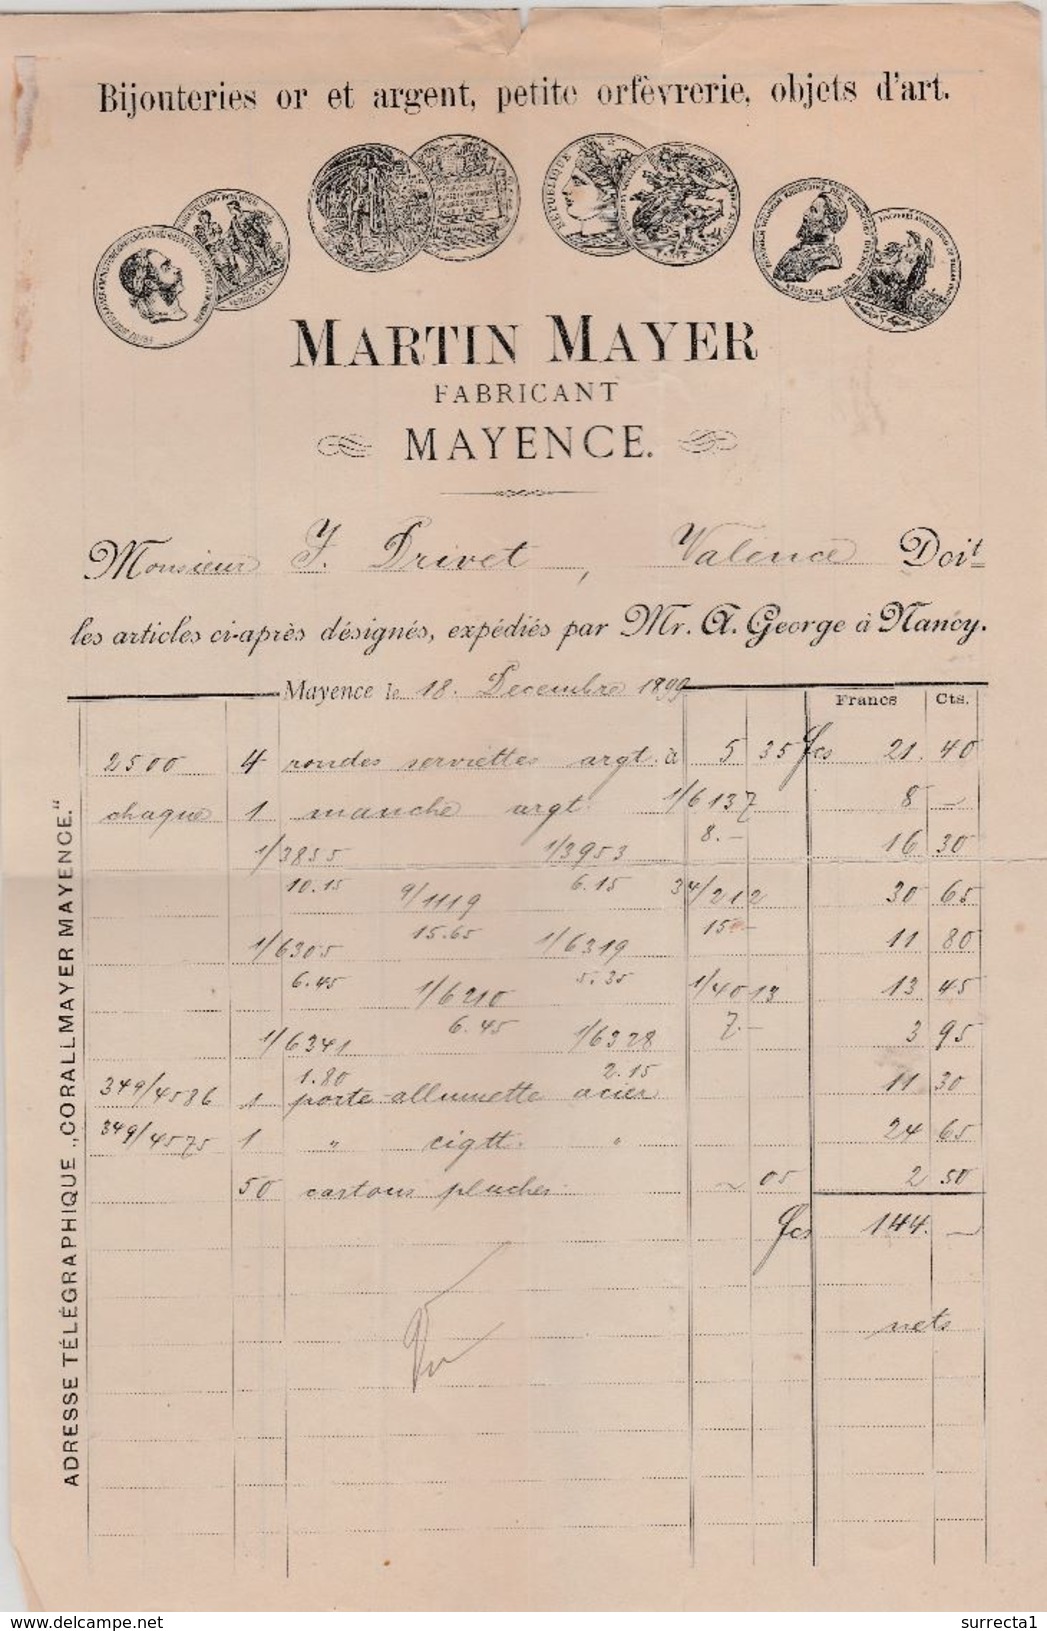 Bijouteries or et argent, petite orfèvrerie, objets d'art.
RÉPUBLIQUE
MARTIN MAYER
FABRICANT
MAYENCE.
Monsieur J. Privet, Valence Doit
les articles ci-après désignés, expédiés par Mr. A. George à Nancy.
Mayence le 18. Decembre 1899
Francs Cts.
2500 4 rondes serviettes argt. à 5 35 fcs 21. 40
chaque 1 manche argt. 1/6137 8 —
1/3855 1/3953 8.- 16 30
10.15 9/1119 6.15 34/212 30 65
1/6305 15.65 1/6319 15.- 11 80
6.45 1/6210 5.35 1/4013 13 45
1/6341 6.45 1/6328 7.- 3 95
1.80 2.15
349/4586 1 porte-allumette acier 11 30
349/4575 1 " cigtt. " 24 65
50 cartons pluches — 05 2 50
fcs 144. —
nets
ADRESSE TÉLÉGRAPHIQUE „CORALLMAYER MAYENCE."
www.delcampe.net
surrecta1